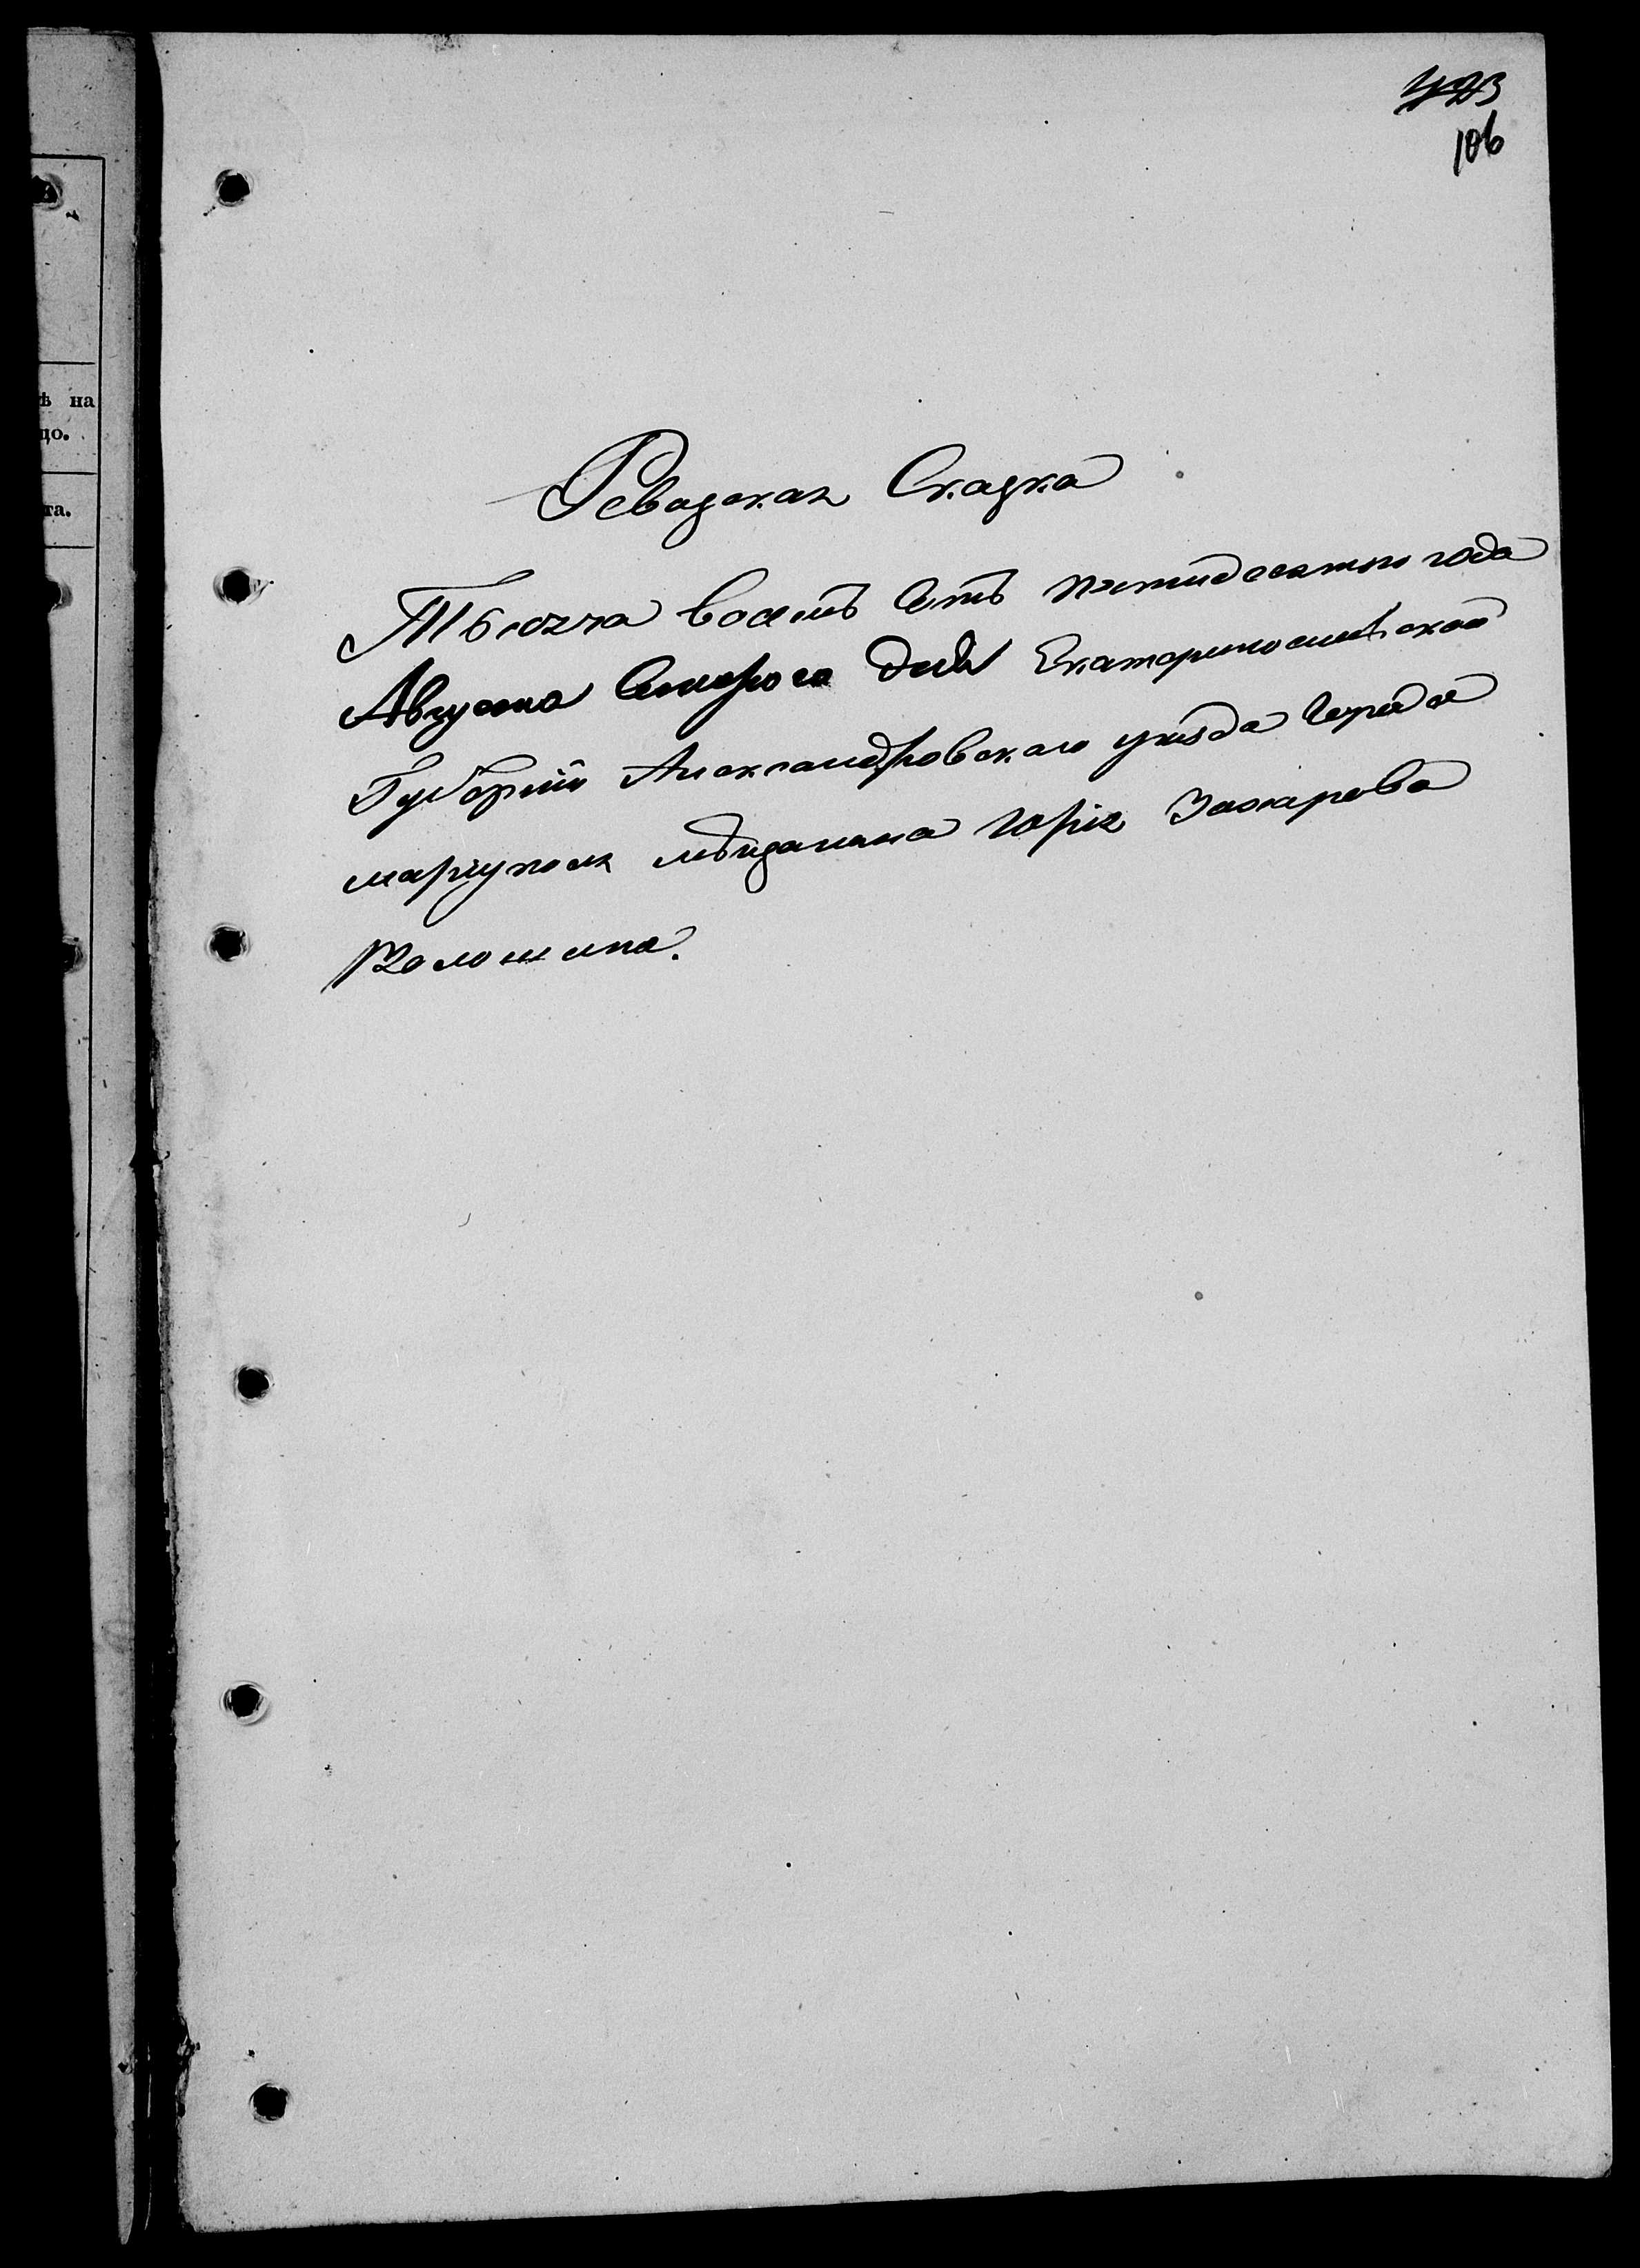 106
ѣ на
цо.
та.
Ревизская Сказка
Тысяча восемь Сотъ пятидесятого года
Августа дня Екатеринославской
Губернии Александровского уѣзда Города
мариуполя мѣщанина Юрія Захарова
Волошина.